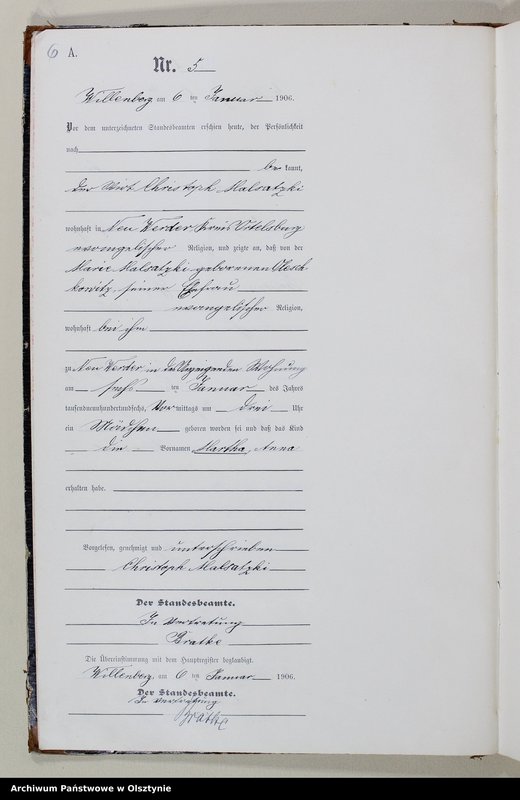 6 A.
Nr. 5
Willenberg am 6 ten Januar 1906.
Vor dem unterzeichneten Standesbeamten erschien heute, der Persönlichkeit
nach
be kannt,
der Wirt Christoph Malsatzki
wohnhaft in Neu Werder Kreis Ortelsburg
evangelischer Religion, und zeigte an, daß von der
Marie Malsatzki geborenen Olesch
kowitz, seiner Ehefrau
evangelischer Religion,
wohnhaft bei ihm
zu Neu Werder in des Anzeigenden Wohnung
am sechs ten Januar des Jahres
tausendneunhundertundsechs, Vor mittags um drei Uhr
ein Mädchen geboren worden sei und daß das Kind
die Vornamen Martha, Anna
erhalten habe.
Vorgelesen, genehmigt und unterschrieben
Christoph Malsatzki
Der Standesbeamte.
In Vertretung
Bratke
Die Übereinstimmung mit dem Hauptregister beglaubigt.
Willenberg, am 6 ten Januar 1906.
Der Standesbeamte.
In Vertretung
Bratke
Archiwum Państwowe w Olsztynie